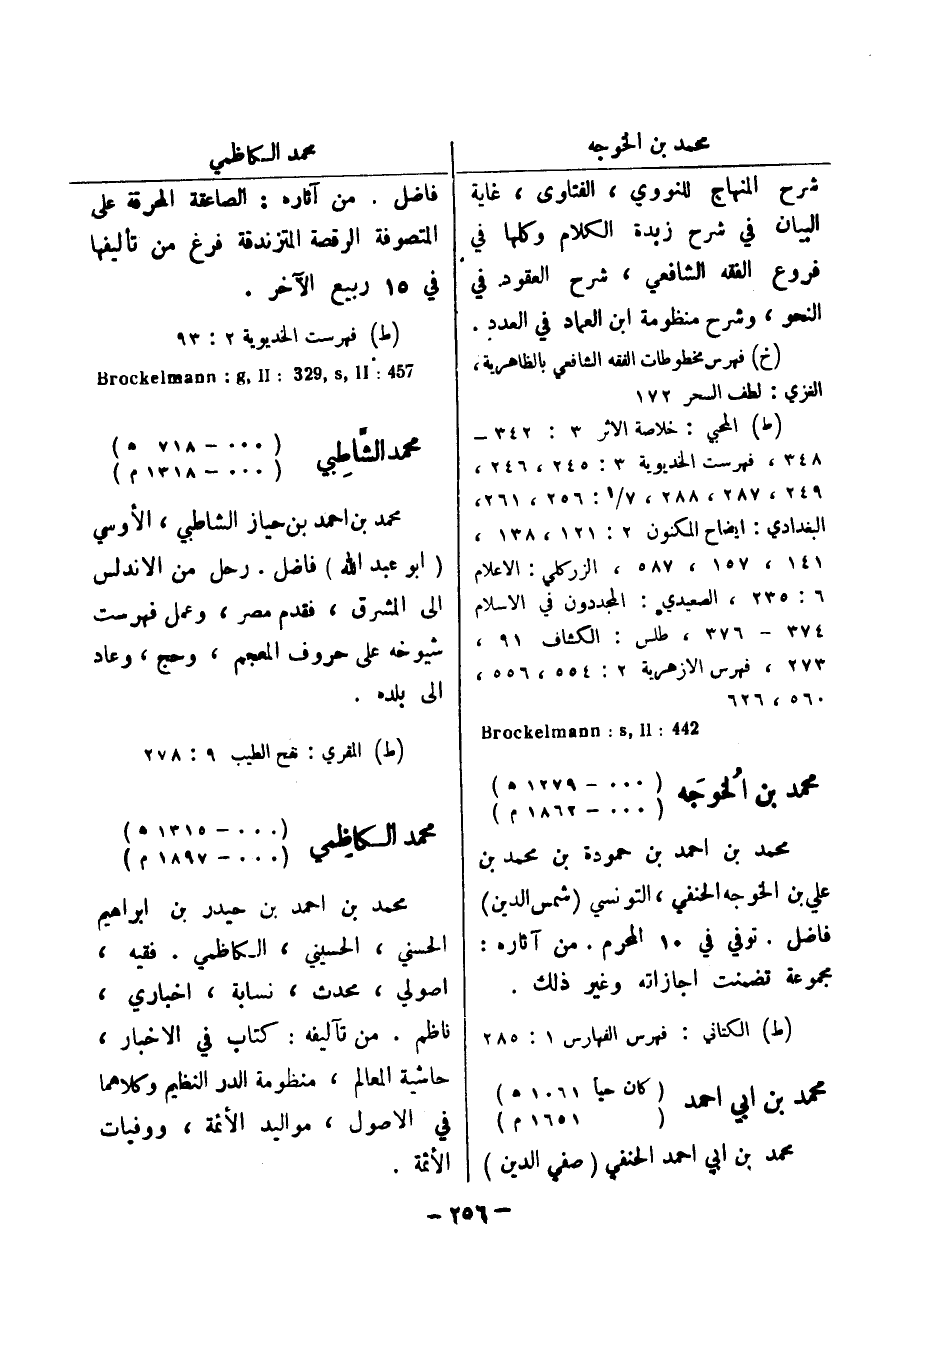 محمد بن الخوجه
شرح المنهاج للنووي ، الفتاوى ، غاية
البيان في شرح زبدة الكلام وكلها في
فروع الفقه الشافعي ، شرح العقود في
النحو ، وشرح منظومة ابن العماد في العدد .
(خ) فهرس مخطوطات الفقه الشافعي بالظاهرية ،
الغزي : لطف السحر ١٧٢
(ط) المحبي : خلاصة الاثر ٣ : ٣٤٢ –
٣٤٨ ، فهرست الخديوية ٣ : ٢٤٥ ، ٢٤٦ ،
٢٤٩ ، ٢٨٧ ، ٢٨٨ ، ٧/١ : ٢٥٦ ، ٢٦١ ،
البغدادي : ايضاح المكنون ٢ : ١٢١ ، ١٣٨ ،
١٤١ ، ١٥٧ ، ٥٨٧ ، الزركلي : الاعلام
٦ : ٢٣٥ ، الصعيدي : المجددون في الاسلام
٣٧٤ – ٣٧٦ ، طلس : الكشاف ٩١ ،
٢٧٣ ، فهرس الازهرية ٢ : ٥٥٤ ، ٥٥٦ ،
٥٦٠ ، ٦٢٦
Brockelmann : s, II : 442
محمد بن الخُوجَه (٠٠٠ – ١٢٧٩ ه)
(٠٠٠ – ١٨٦٢ م)
محمد بن احمد بن حمودة بن محمد بن
علي بن الخوجه الحنفي ، التونسي (شمس الدين)
فاضل . توفي في ١٠ المحرم . من آثاره :
مجموعة تضمنت اجازاته وغير ذلك .
(ط) الكتاني : فهرس الفهارس ١ : ٢٨٥
محمد بن ابي احمد (كان حياً ١٠٦١ ه)
( ١٦٥١ م)
محمد بن ابي احمد الحنفي (صفي الدين)
محمد الكاظمي
فاضل . من آثاره : الصاعقة المحرقة على
المتصوفة الرقصة المتزندقة فرغ من تأليفها
في ١٥ ربيع الآخر .
(ط) فهرست الخديوية ٢ : ٩٣
Brockelmann : g, II : 329, s, II : 457
محمد الشَّاطِبي (٠٠٠ – ٧١٨ ه)
(٠٠٠ – ١٣١٨ م)
محمد بن احمد بن حياز الشاطبي ، الأوسي
(ابو عبد الله) فاضل . رحل من الاندلس
الى المشرق ، فقدم مصر ، وعمل فهرست
شيوخه على حروف المعجم ، وحج ، وعاد
الى بلده .
(ط) المقري : نفح الطيب ٩ : ٢٧٨
محمد الكاظِمي (٠٠٠ – ١٣١٥ ه)
(٠٠٠ – ١٨٩٧ م)
محمد بن احمد بن حيدر بن ابراهيم
الحسني ، الحسيني ، الكاظمي . فقيه ،
اصولي ، محدث ، نسابة ، اخباري ،
ناظم . من تآليفه : كتاب في الاخبار ،
حاشية المعالم ، منظومة الدر النظيم وكلاهما
في الاصول ، مواليد الأئمة ، ووفيات
الأئمة .
– ٢٥٦ –